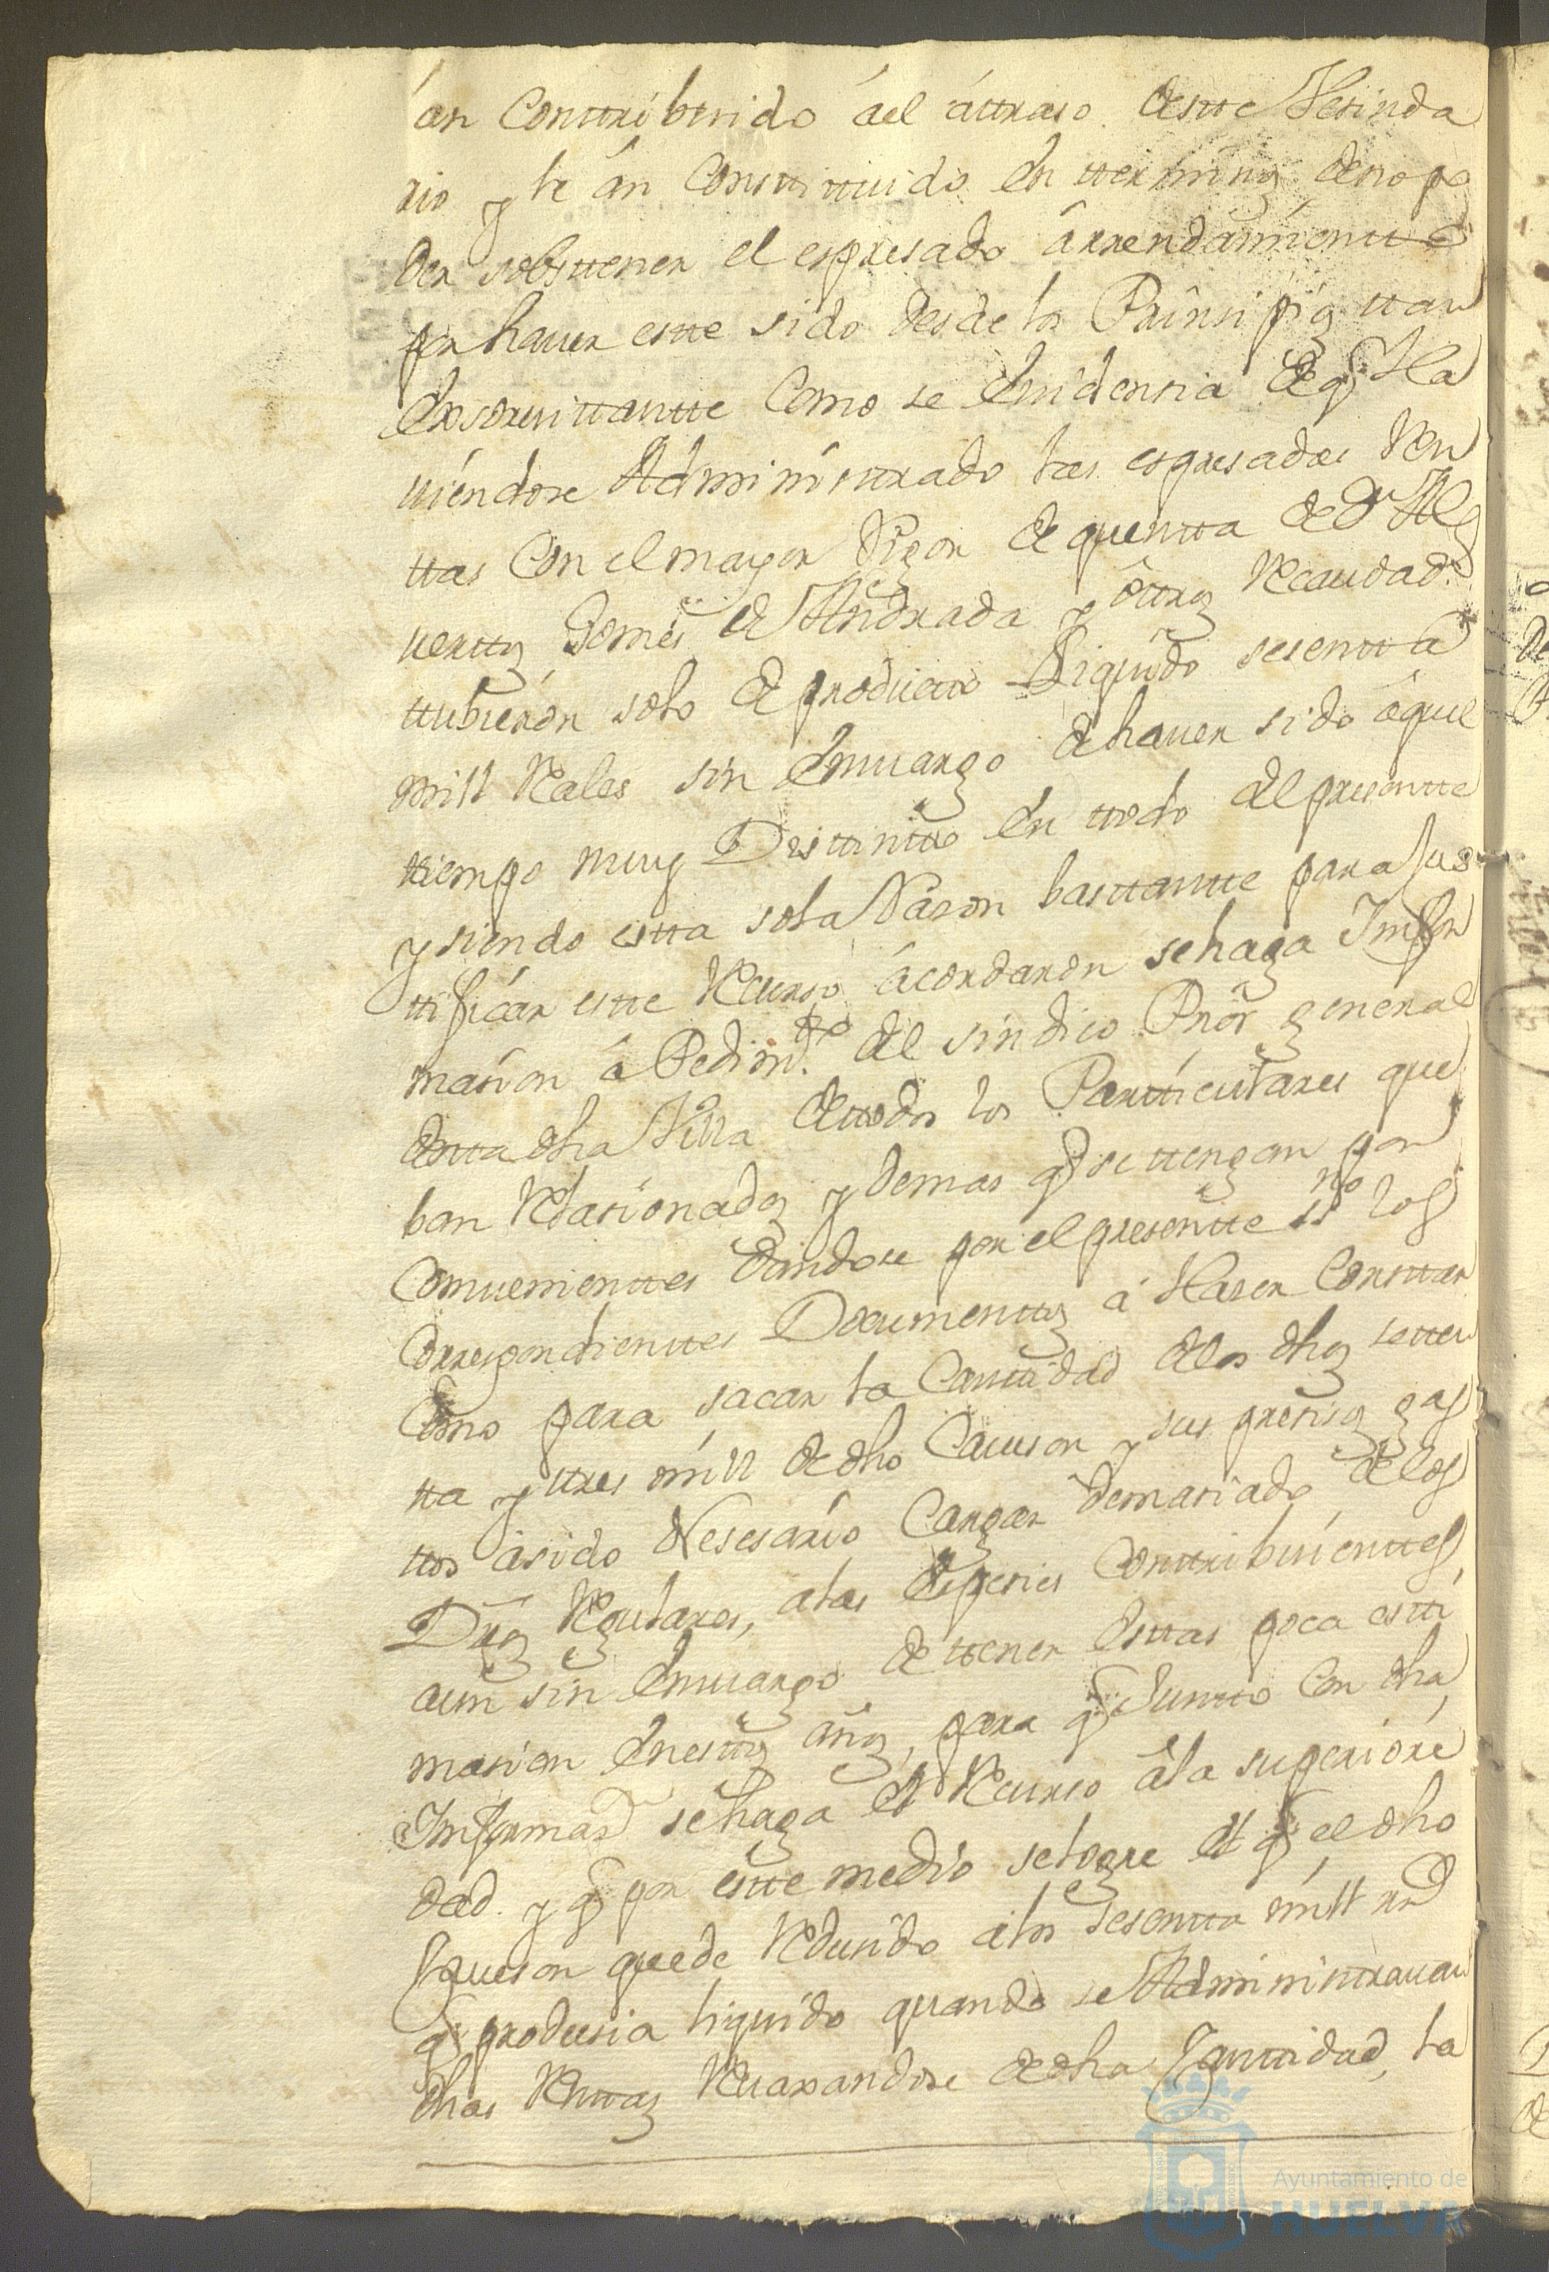 án Conttribuido áel áttraso destte Vesinda
rio y le án Constituido En tterminos deno po
der sobsttener el espresado árrendamientto
por hauer estte sido desde los Prinsipios ttan
Exsorvittantte Como se Euidensia de q.e Ha
uiendose Administtrado las espresadas Ren
ttas Con el mayor Rigor de quentta de D.n Al
uertto Gomes de Andrada y ôttros Recaudad.s
ttubieron solo de productto Liquido sesentta
mill Reales sin Emuargo de hauer sido áquel
tiempo muy Disttintto En ttodo del presentte
y siendo estta sola Razon basttantte para Jus
ttificar estte Recurso ácordaron se haga Imfor
masion á Pedim.to del sindico Pror general
destta dha Villa de ttodos los Partticulares que
ban Relasionados y demas q.e se ttengan por
Comuenienttes dandose por el presentte ss.no los
Correspondienttes Documenttos á Haser Consttar
Como para sacar la Canttidad de los dhos setten
tta y ttres mill de dho Caueson y sus presisos gas
ttos ásido Nesesario Cargar demasiado de los
Dros Regulares, alas Espesies Conttribuienttes,
aun sin Emuargo de ttener Esttas poca estti
masion En esttos años, para q.e Juntto Con dha
Imformas.n se haga el Recurso âla superiori
dad y q.e por estte medio se logre el q.e el dho
Caueson quede Redusido alos sesentta mill rr.s
q.e produsia liquido quando se Administtrauan
dhas Renttas Reuaxandose de dha Canttidad, la
Ayuntamiento de
HUELVA